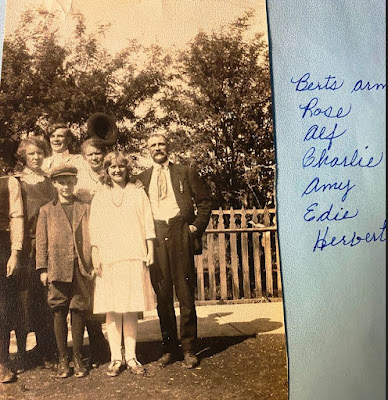 Berts arm
Rose
Alf
Charlie
Amy
Edie
Herbert